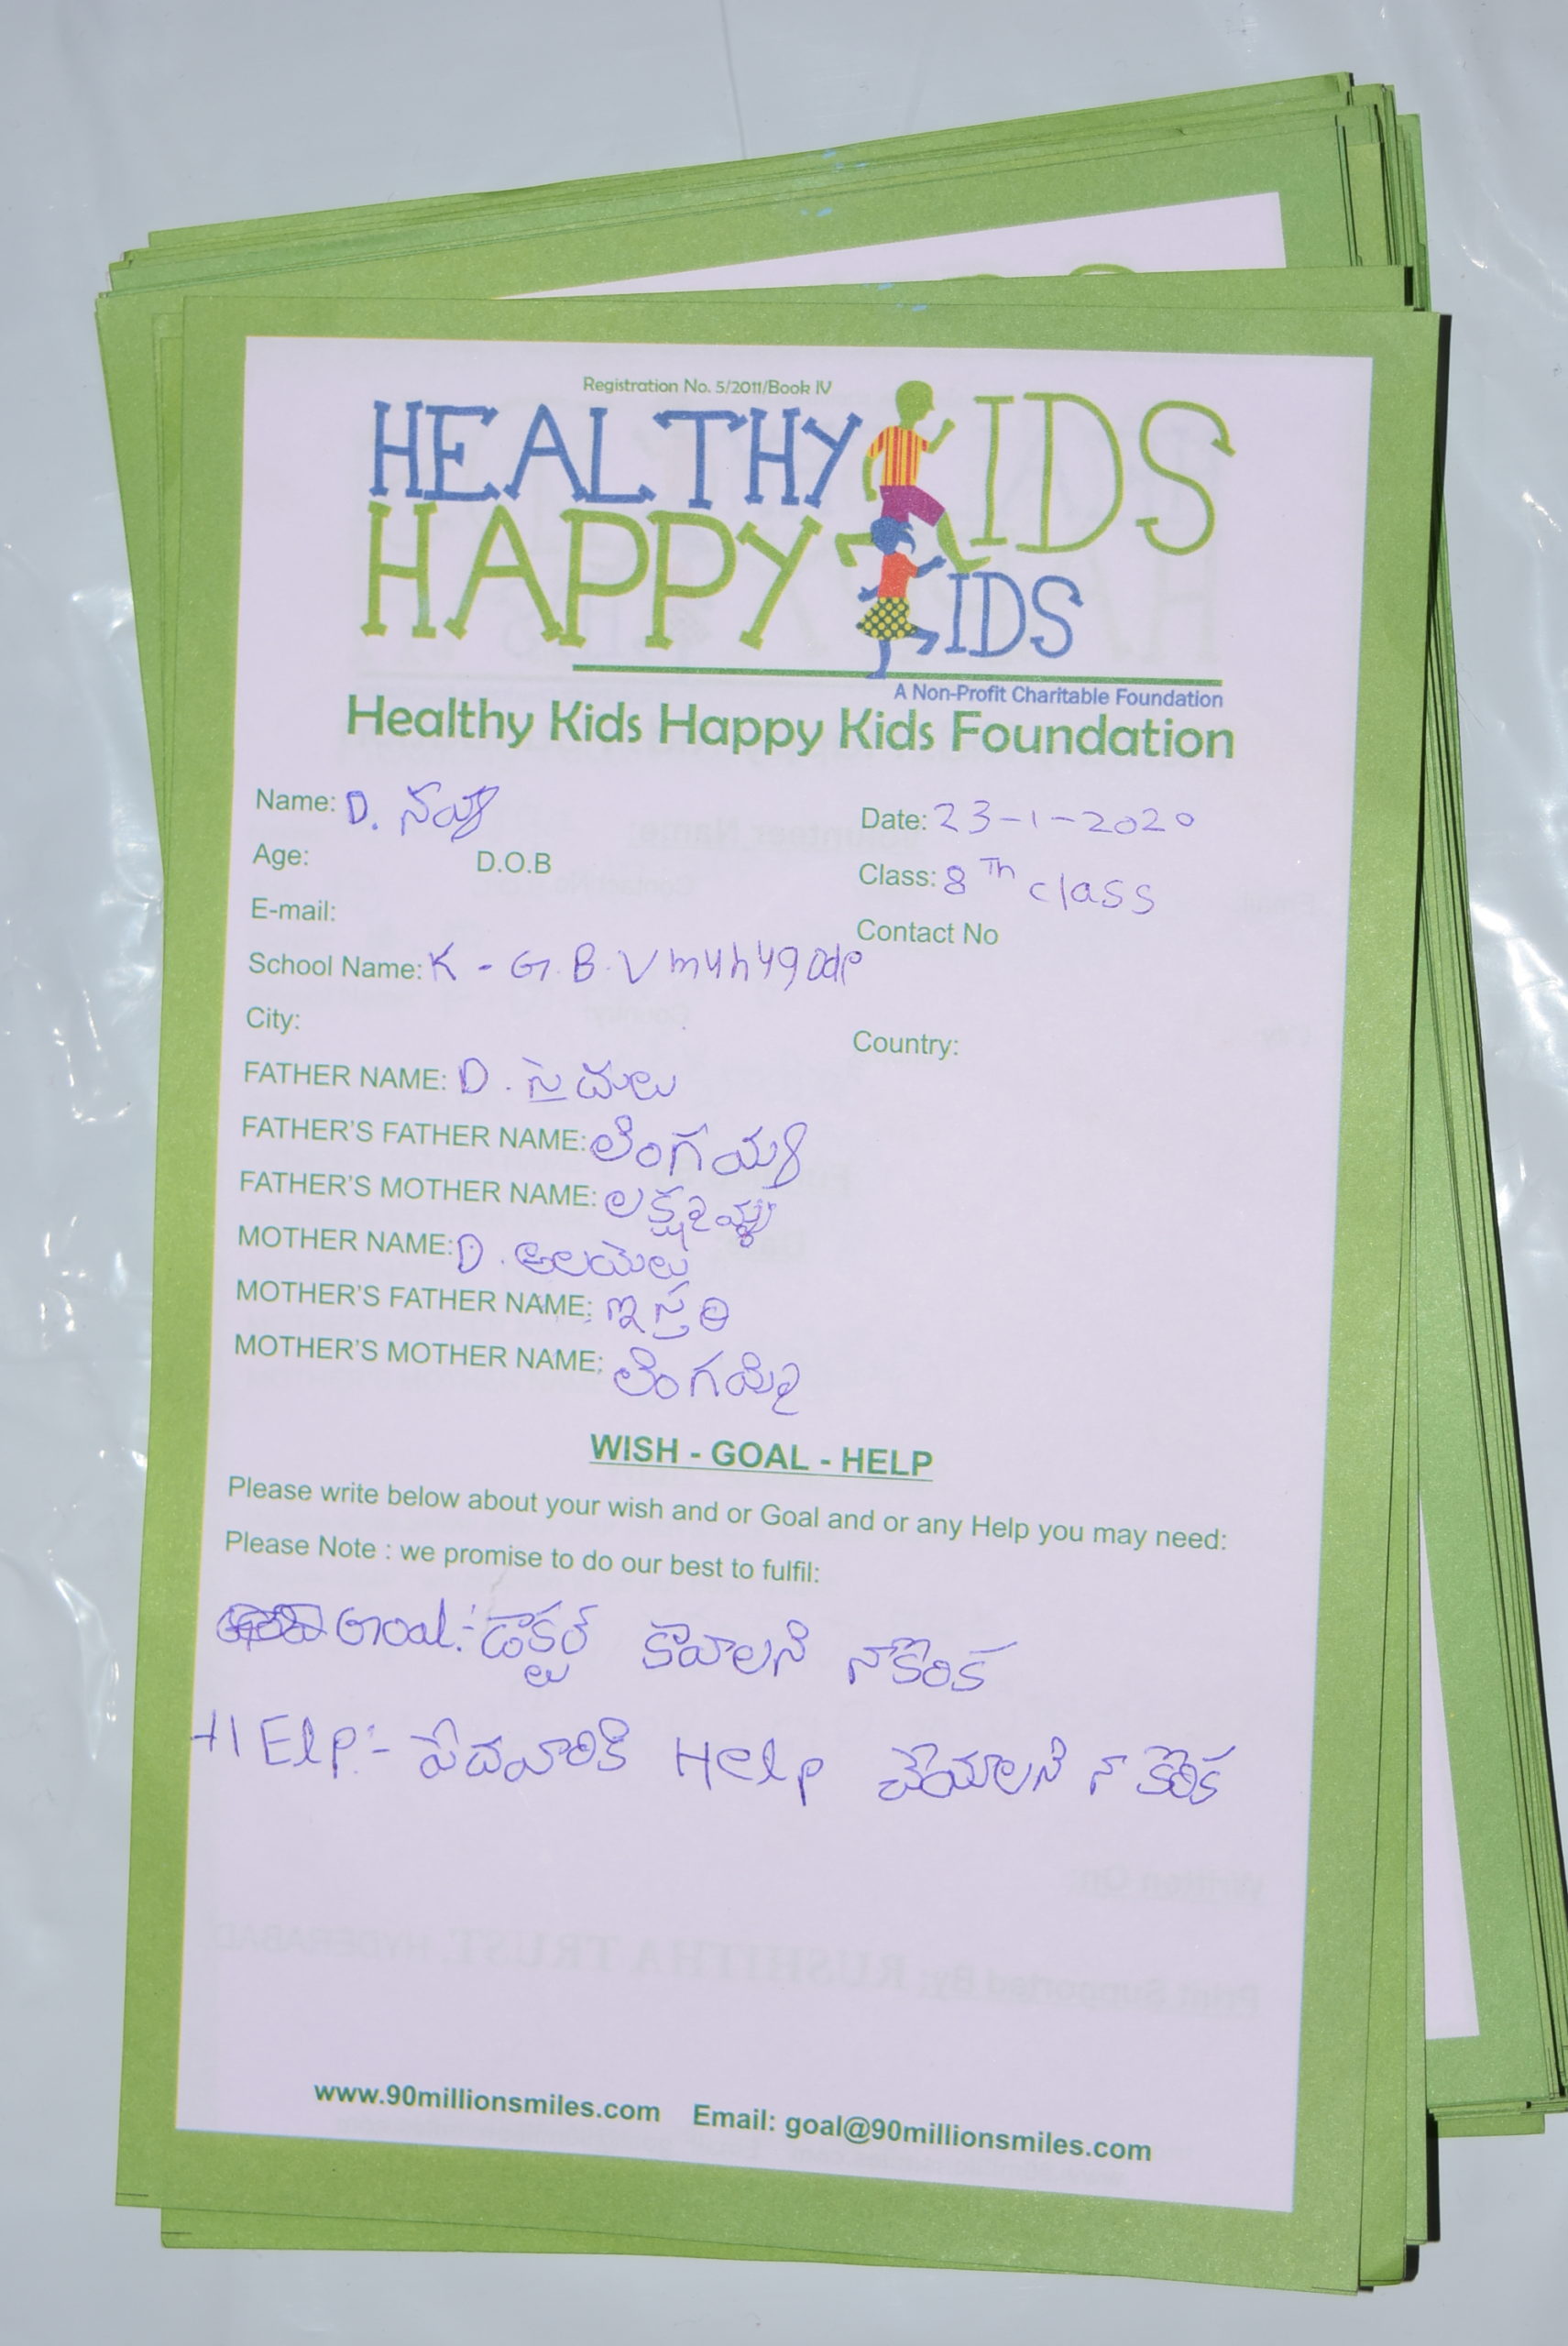 Registration No. 5/2011/Book IV
HEALTHY KIDS
HAPPY KIDS
A Non-Profit Charitable Foundation
Healthy Kids Happy Kids Foundation
Name: D. నవ్య Date: 23-1-2020
Age: D.O.B Class: 8 Th class
E-mail: Contact No
School Name: K - G.B.V
City: Country:
FATHER NAME: D. సైదులు
FATHER'S FATHER NAME: లింగయ్య
FATHER'S MOTHER NAME:
MOTHER NAME: D.
MOTHER'S FATHER NAME: ఇస్తరి
MOTHER'S MOTHER NAME: లింగమ్మ
WISH - GOAL - HELP
Please write below about your wish and or Goal and or any Help you may need:
Please Note : we promise to do our best to fulfil:
Goal:- డాక్టర్ కావాలని నాకొరిక
HElp:- పేదవారికి Help చేయాలని నా కొరిక
www.90millionsmiles.com Email: goal@90millionsmiles.com